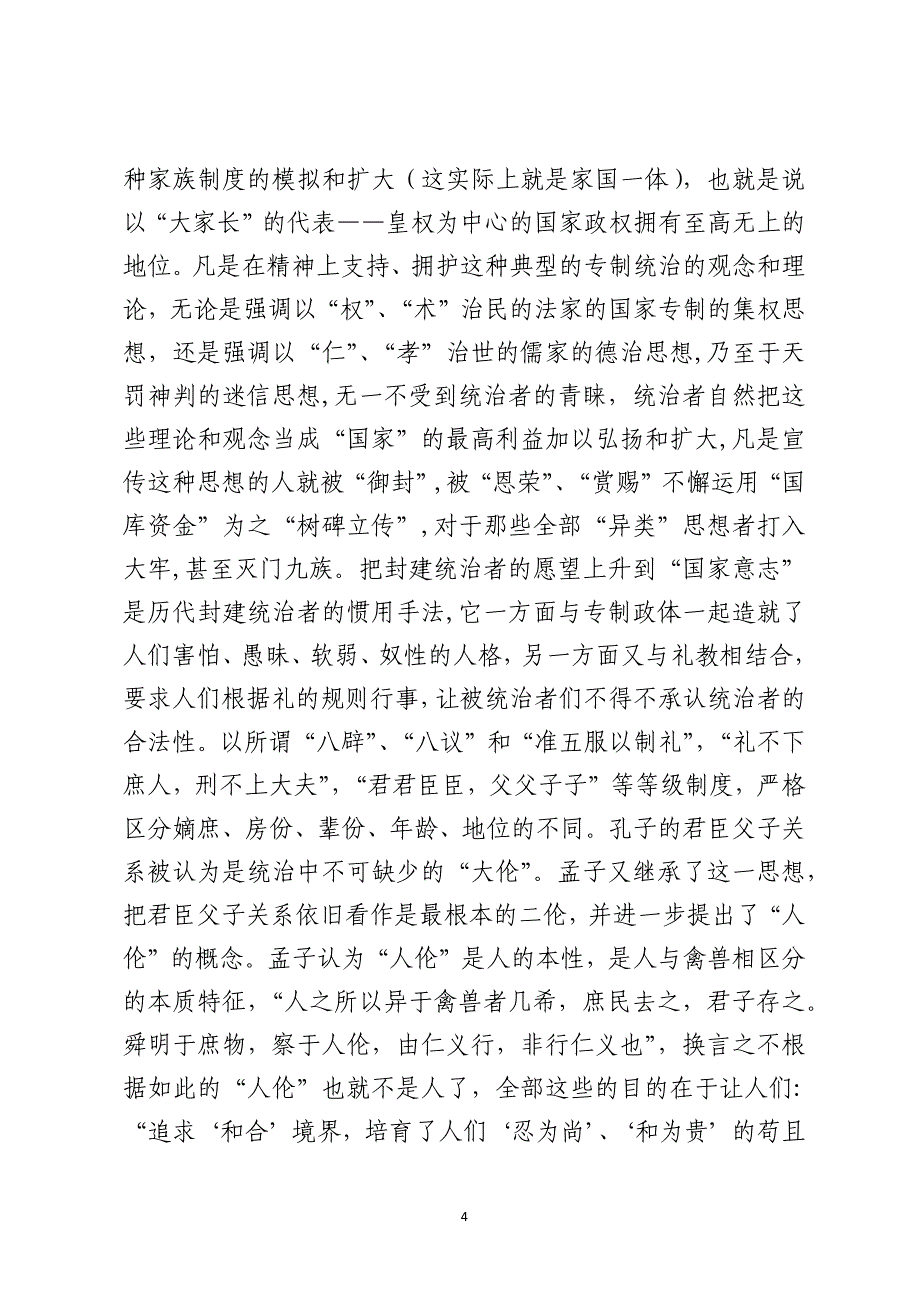 种家族制度的模拟和扩大（这实际上就是家国一体），也就是说
以“大家长”的代表——皇权为中心的国家政权拥有至高无上的
地位。凡是在精神上支持、拥护这种典型的专制统治的观念和理
论，无论是强调以“权”、“术”治民的法家的国家专制的集权思
想，还是强调以“仁”、“孝”治世的儒家的德治思想,乃至于天
罚神判的迷信思想,无一不受到统治者的青睐，统治者自然把这
些理论和观念当成“国家”的最高利益加以弘扬和扩大,凡是宣
传这种思想的人就被“御封”,被“恩荣”、“赏赐”不懈运用“国
库资金”为之“树碑立传”,对于那些全部“异类”思想者打入
大牢,甚至灭门九族。把封建统治者的愿望上升到“国家意志”
是历代封建统治者的惯用手法,它一方面与专制政体一起造就了
人们害怕、愚昧、软弱、奴性的人格，另一方面又与礼教相结合，
要求人们根据礼的规则行事，让被统治者们不得不承认统治者的
合法性。以所谓“八辟”、“八议”和“准五服以制礼”，“礼不下
庶人，刑不上大夫”，“君君臣臣，父父子子”等等级制度，严格
区分嫡庶、房份、辈份、年龄、地位的不同。孔子的君臣父子关
系被认为是统治中不可缺少的“大伦”。孟子又继承了这一思想，
把君臣父子关系依旧看作是最根本的二伦，并进一步提出了“人
伦”的概念。孟子认为“人伦”是人的本性，是人与禽兽相区分
的本质特征，“人之所以异于禽兽者几希，庶民去之，君子存之。
舜明于庶物，察于人伦，由仁义行，非行仁义也”，换言之不根
据如此的“人伦”也就不是人了，全部这些的目的在于让人们：
“追求‘和合’境界，培育了人们‘忍为尚’、‘和为贵’的苟且
4